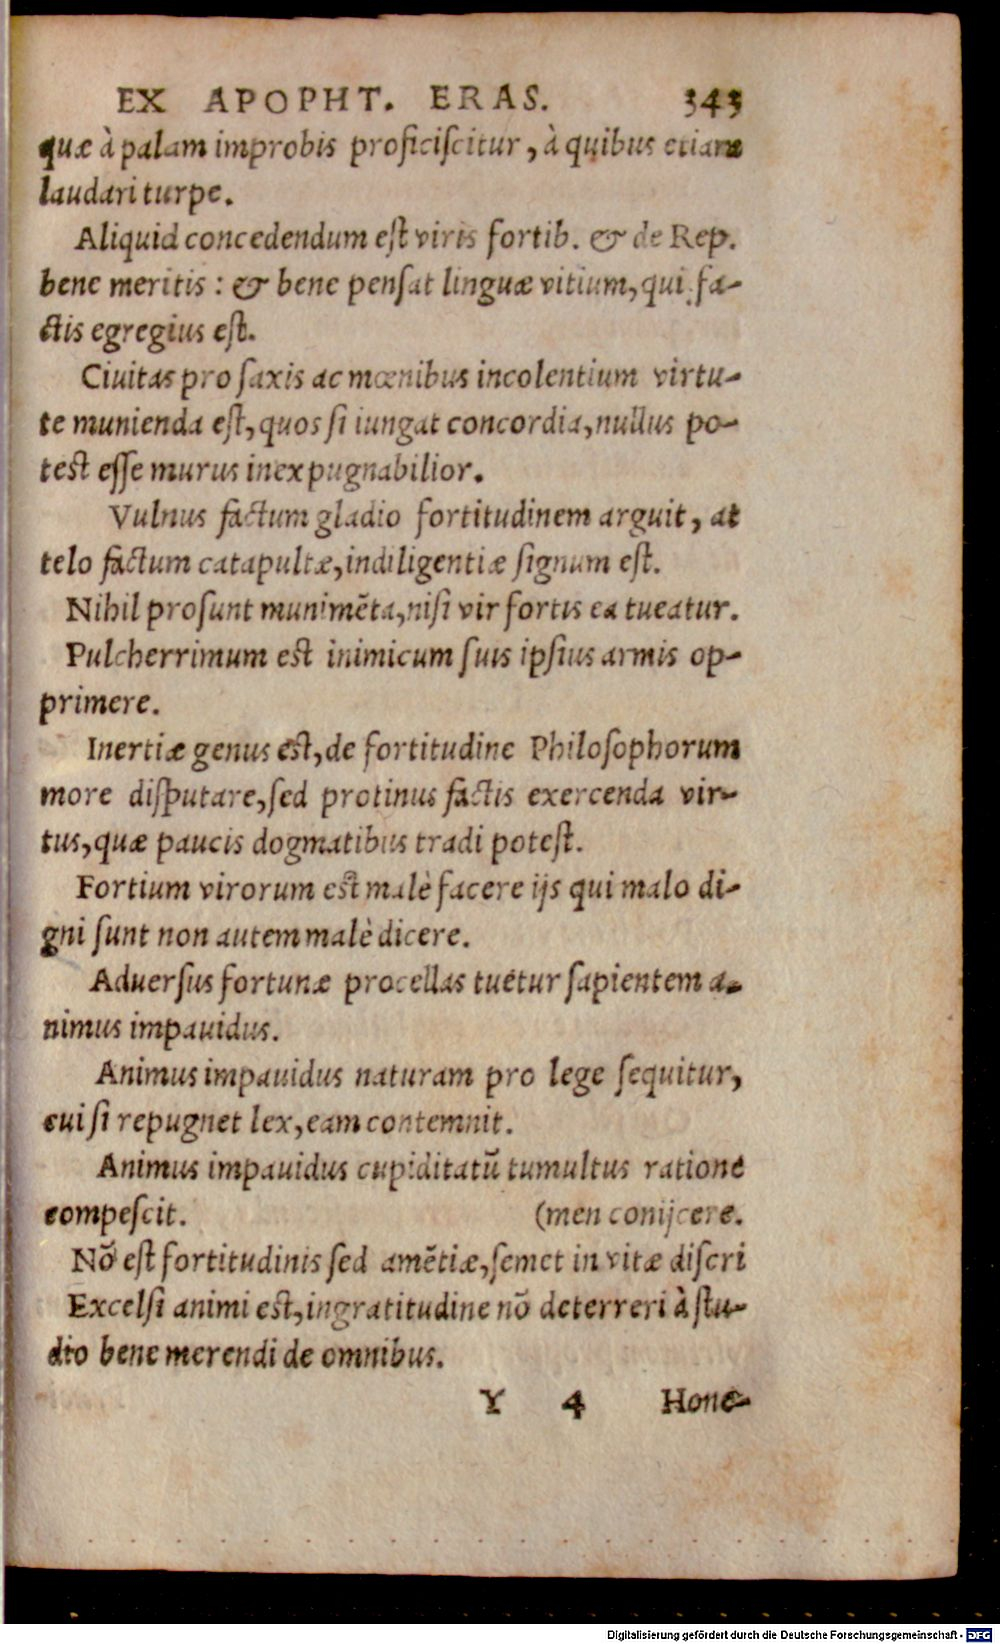 EX APOPHT. ERAS. 343
quæ à palam improbis proficiſcitur, à quibus etiam
laudari turpe.
Aliquid concedendum eſt viris fortib. & de Rep.
bene meritis: & bene penſat linguæ vitium, qui fa-
ctis egregius eſt.
Ciuitas pro ſaxis ac mœnibus incolentium virtu-
te munienda eſt, quos ſi iungat concordia, nullus po-
test eſſe murus inexpugnabilior.
Vulnus factum gladio fortitudinem arguit, at
telo factum catapultæ, indiligentiæ ſignum eſt.
Nihil proſunt munimẽta, niſi vir fortis ea tueatur.
Pulcherrimum est inimicum ſuis ipſius armis op-
primere.
Inertiæ genus eſt, de fortitudine Philoſophorum
more diſputare, ſed protinus factis exercenda vir-
tus, quæ paucis dogmatibus tradi poteſt.
Fortium virorum est malè facere ijs qui malo di-
gni ſunt non autem malè dicere.
Aduerſus fortunæ procellas tuetur ſapientem a-
nimus impauidus.
Animus impauidus naturam pro lege ſequitur,
cui ſi repugnet lex, eam contemnit.
Animus impauidus cupiditatũ tumultus ratione
compeſcit. (men conijcere.
Nõ eſt fortitudinis ſed amẽtiæ, ſemet in vitæ diſcri
Excelſi animi est, ingratitudine nõ deterreri à ſtu-
dio bene merendi de omnibus.
Y 4 Hone-
Digitalisierung gefördert durch die Deutsche Forschungsgemeinschaft - DFG